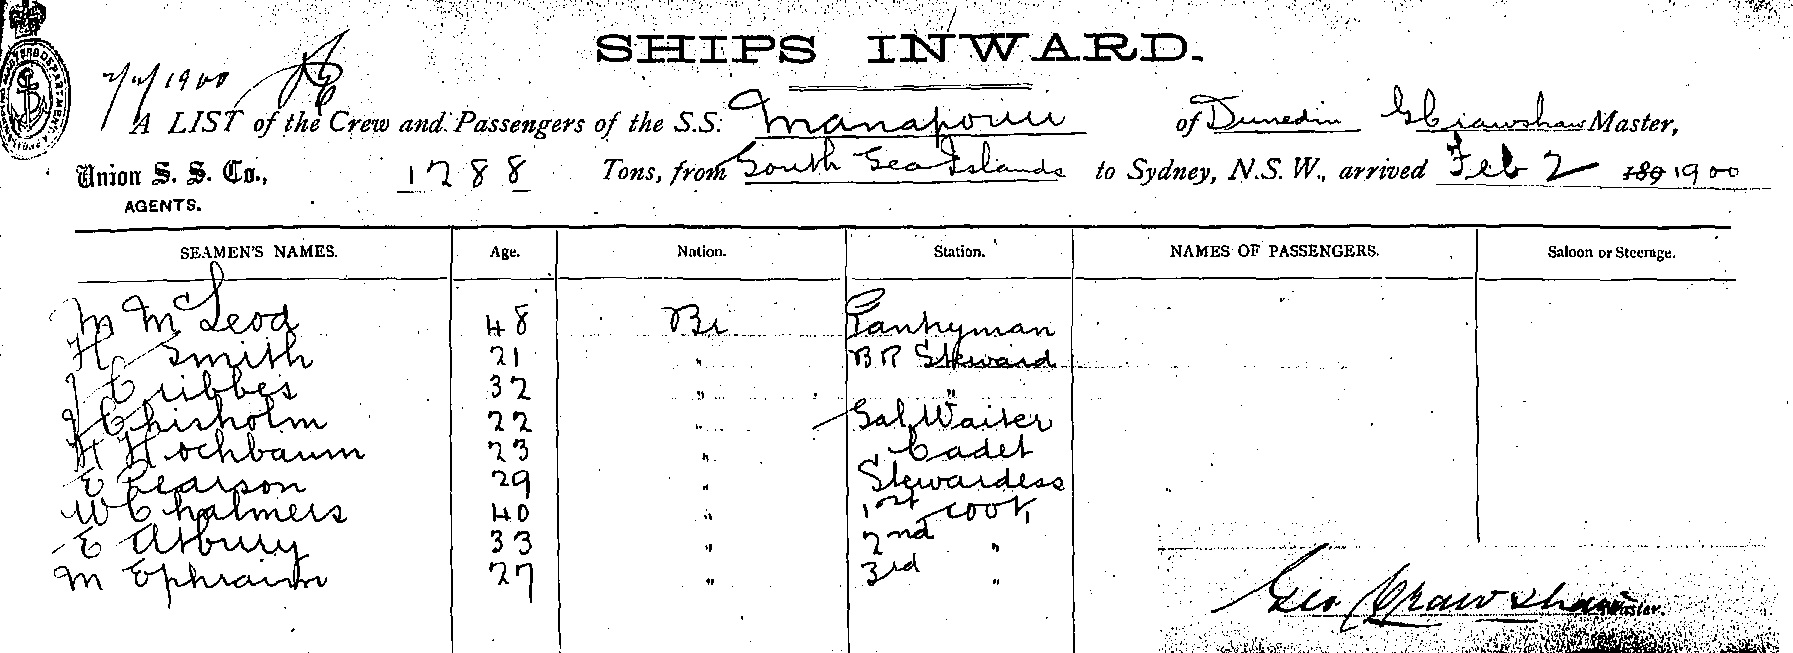 SHIPS INWARD.
2/2/1900
A LIST of the Crew and Passengers of the S.S. Manapouri of Dunedin G Crawshaw Master,
Union S. S. Co., 1788 Tons, from South Sea Islands to Sydney, N.S.W., arrived Feb 2 189 1900
AGENTS.
SEAMEN'S NAMES. Age. Nation. Station. NAMES OF PASSENGERS. Saloon or Steerage.
M McLeod 48 Br Pantryman
H Smith 21 " BR Steward
J Cribbes 32 " "
J Chisholm 22 " Sal Waiter
H Hochbaum 23 " Cadet
E Pearson 29 " Stewardess
W Chalmers 40 " 1st Cook
E Atbury 33 " 2nd "
M Ephraim 27 " 3rd "
Geo Crawshaw Master.